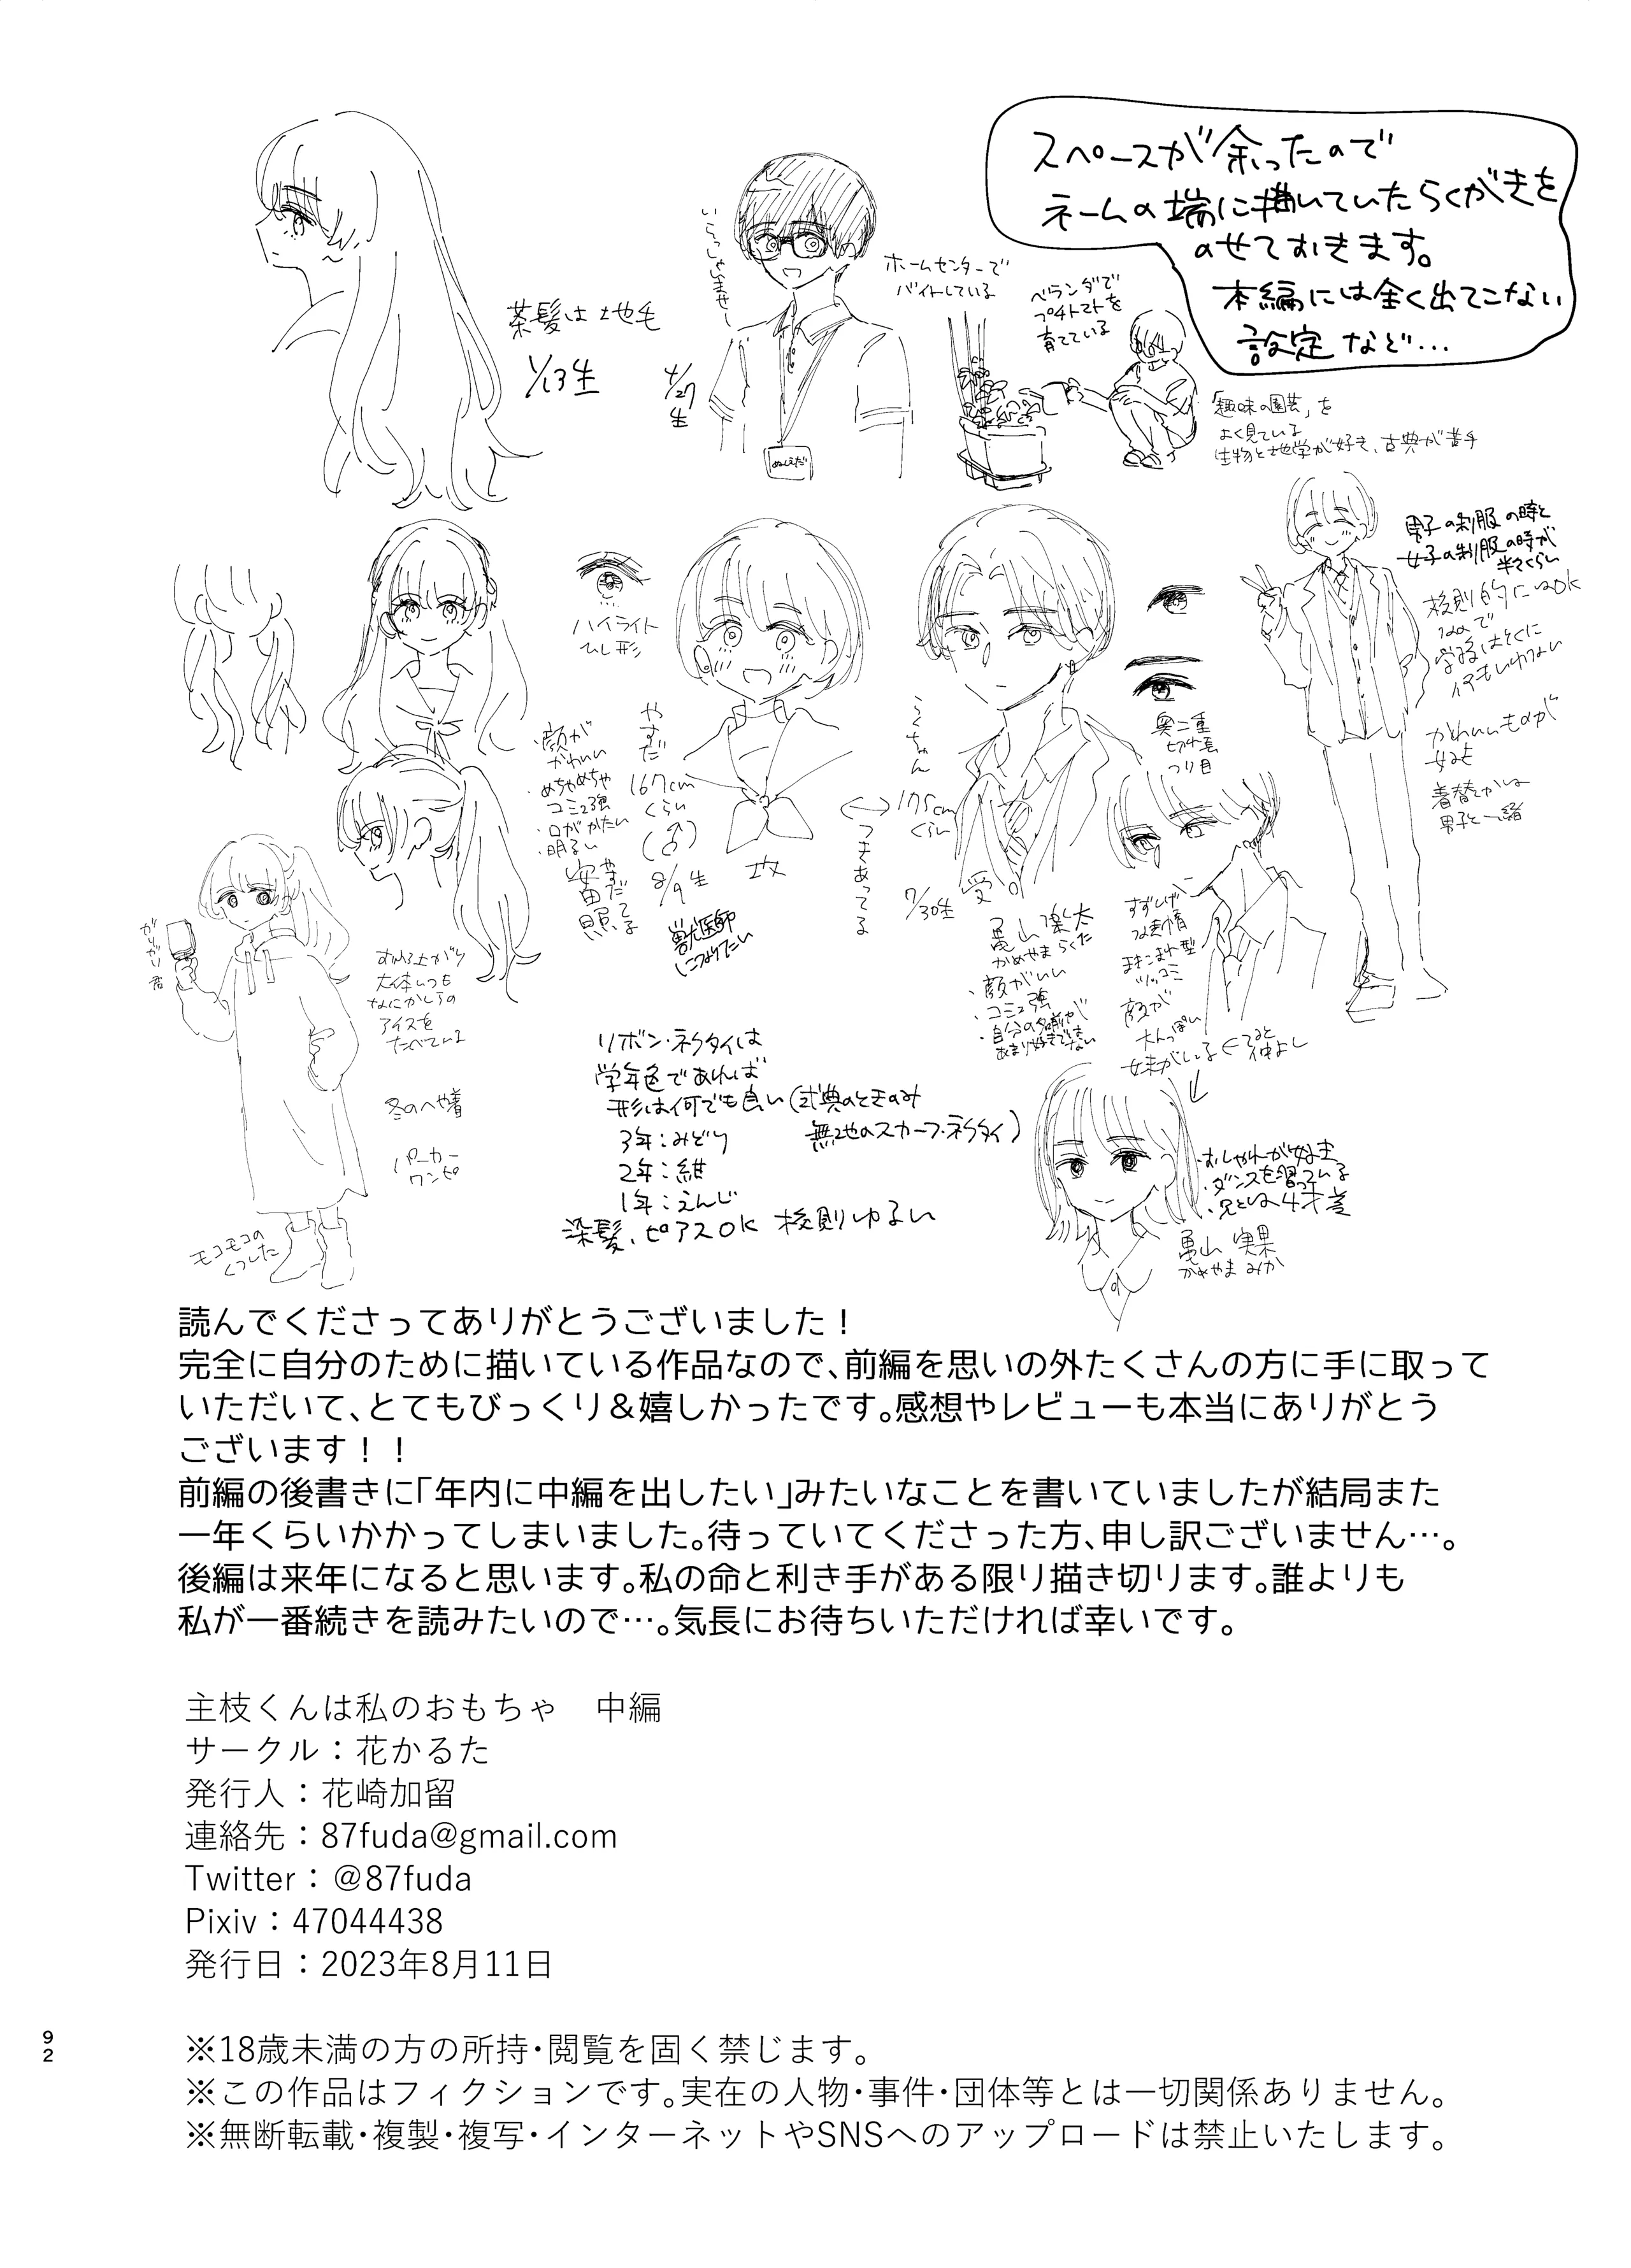 スペースが余ったので
ネームの端に描いていたらくがきを
のせておきます。
本編には全く出てこない
設定など…
茶髪は地毛
1/13生
いらっしゃいませー
4/27
生
ぬしえだ
ホームセンターで
バイトしている
ベランダで
プチトマトを
育てている
「趣味の園芸」を
よく見ている
生物と地学が好き、古典が苦手
男子の制服の時と
女子の制服の時が
半々くらい
校則的にはOK
なので
学校はとくに
何もいわない
かわいいものが
好き
着替とかは
男子と一緒
ハイライト
ひし形
・顔が
かわいい
・めちゃめちゃ
コミュ強
・口がかたい
・明るい
やすだ
167cm
くらい
(♂)
8/9生
攻
安田
照
獣医師
になりたい
つきあってる
らくちゃん
175cm
くらい
7/30生
受
亀山 楽太
かめやま らくた
・顔がいい
・コミュ強
・自分の名前が
あまり好きではない
奥二重
切れ長
つり目
まきこまれ型
ツッコミ
顔が
大人っぽい
妹がいる
仲よし
・おしゃれが好き
・ダンスを習っている
・兄とは4才差
亀山 実果
かめやま みか
ガリガリ君
おふろ上がり
大体いつも
なにかしらの
アイスを
たべている
冬のへや着
パーカー
ワンピ
モコモコの
くつした
リボン・ネクタイは
学年色であれば
形は何でも良い(式典のときのみ
無地のスカーフ・ネクタイ)
3年:みどり
2年:紺
1年:えんじ
染髪、ピアスOK 校則ゆるい
読んでくださってありがとうございました！
完全に自分のために描いている作品なので、前編を思いの外たくさんの方に手に取って
いただいて、とてもびっくり＆嬉しかったです。感想やレビューも本当にありがとう
ございます！！
前編の後書きに「年内に中編を出したい」みたいなことを書いていましたが結局また
一年くらいかかってしまいました。待っていてくださった方、申し訳ございません…。
後編は来年になると思います。私の命と利き手がある限り描き切ります。誰よりも
私が一番続きを読みたいので…。気長にお待ちいただければ幸いです。
主枝くんは私のおもちゃ　中編
サークル：花かるた
発行人：花崎加留
連絡先：87fuda@gmail.com
Twitter：@87fuda
Pixiv：47044438
発行日：2023年8月11日
※18歳未満の方の所持・閲覧を固く禁じます。
※この作品はフィクションです。実在の人物・事件・団体等とは一切関係ありません。
※無断転載・複製・複写・インターネットやSNSへのアップロードは禁止いたします。
92